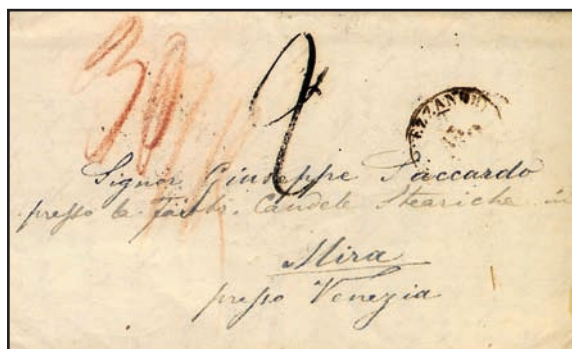 30
2
Signor Giuseppe
presso la Fabb. Candele Steariche in
Mira
presso Venezia